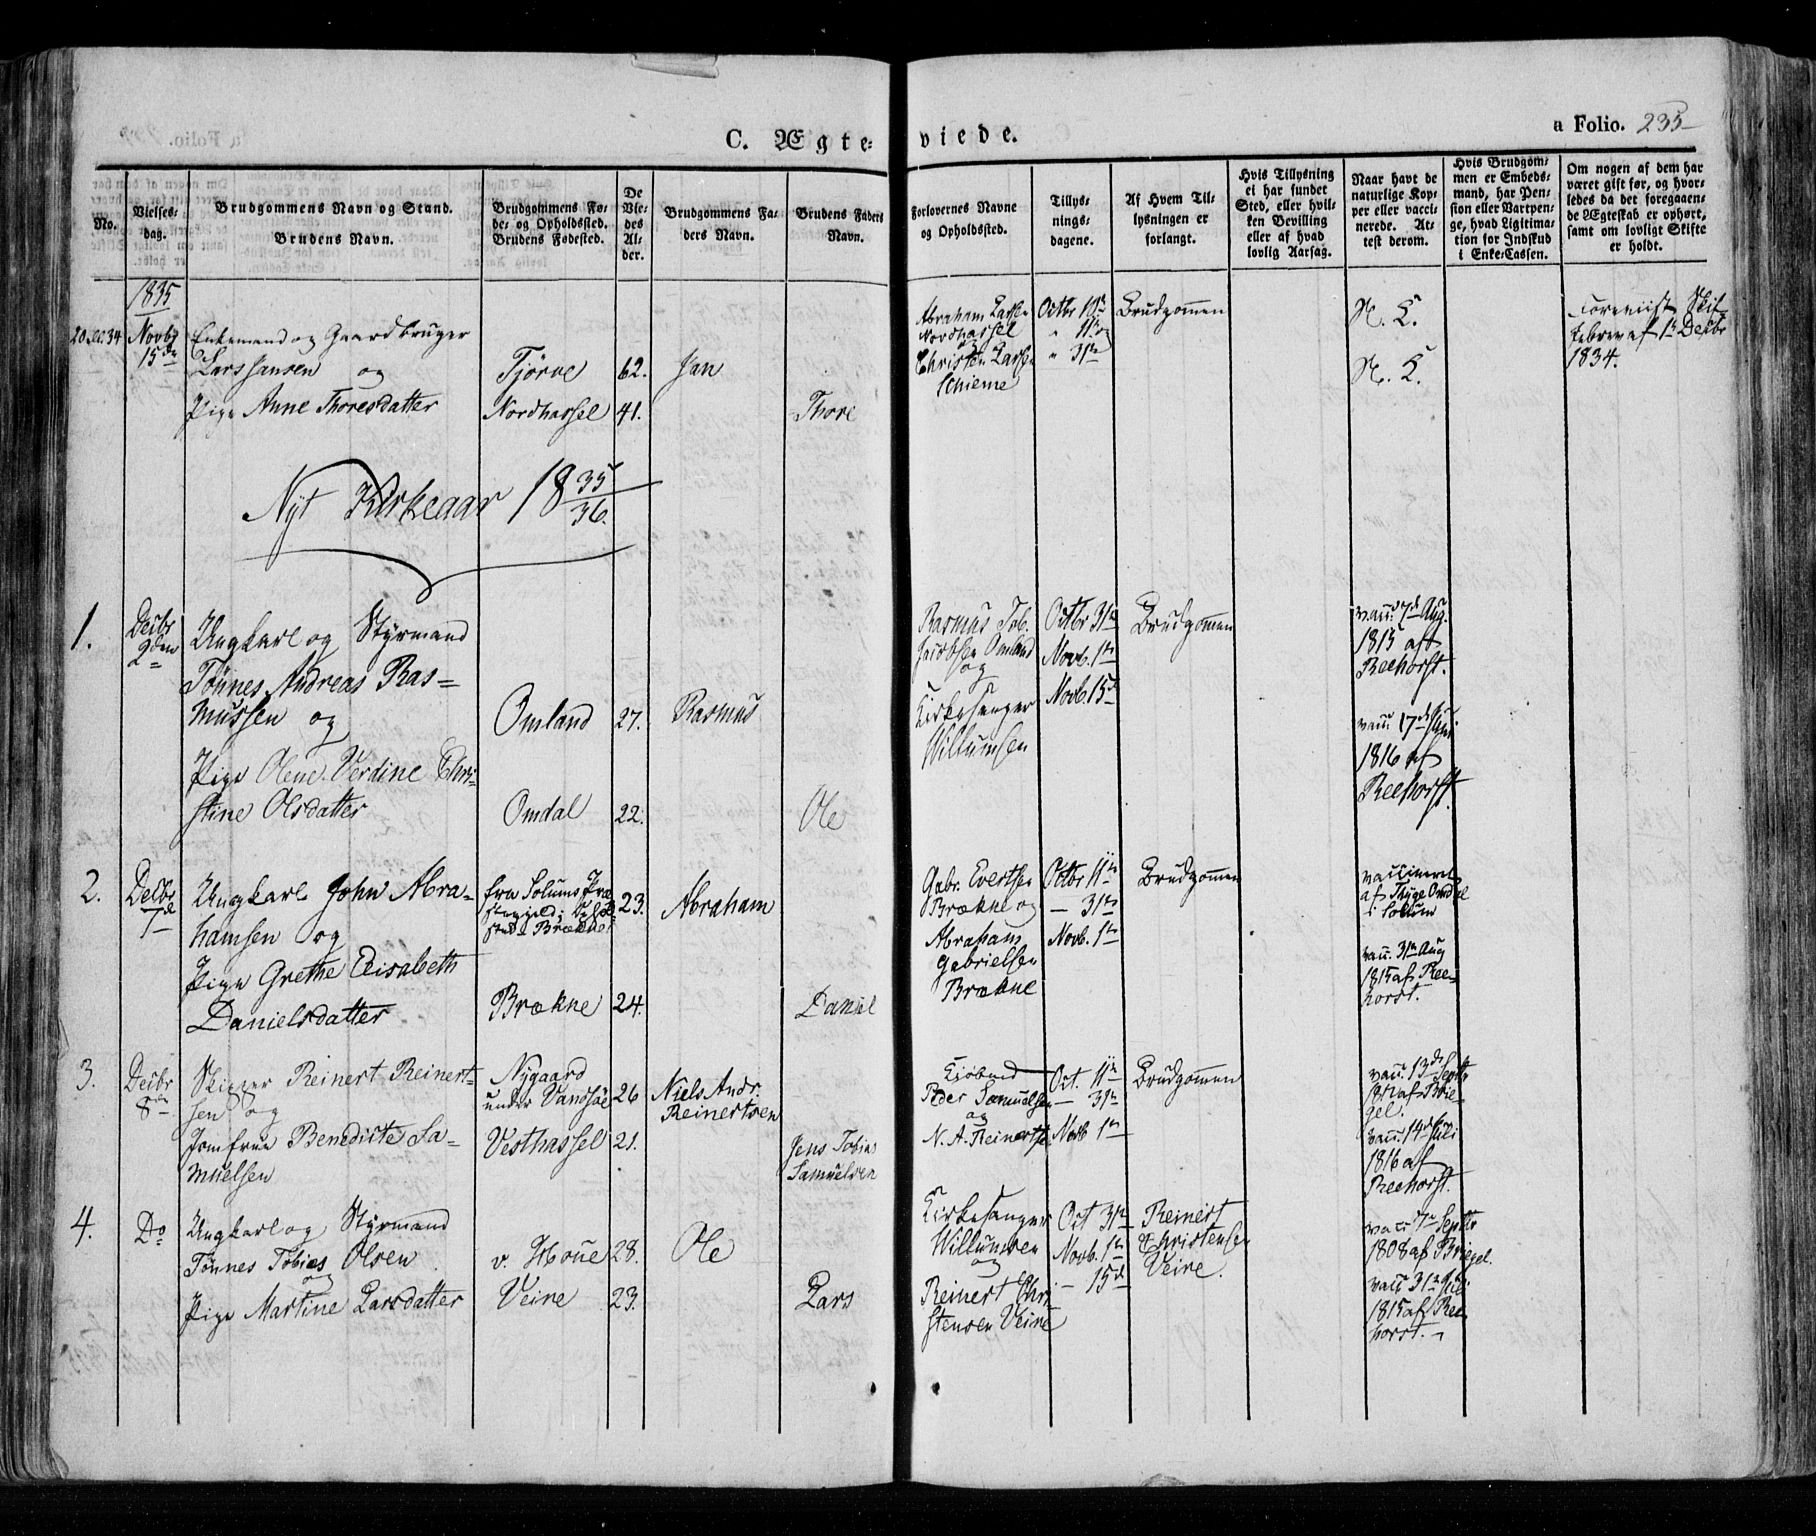 C. Ægte-viede.
a Folio. 235
No.
Vielses-
dag.
Brudgommens Navn og Stand.
Brudens Navn.
Brudgommens Fø-
de- og Opholdssted.
Brudens Fødested.
De
Vie-
des
Al-
der.
Brudgommens Fa-
ders Navn.
Brudens Faders
Navn.
Forlovernes Navne
og Opholdssted.
Tillys-
nings-
dagene.
Af Hvem Til-
lysningen er
forlangt.
Hvis Tillysning
ei har fundet
Sted, eller hvil-
ken Bevilling
eller af hvad
lovlig Aarsag.
Naar havt de
naturlige Kop-
per eller vacci-
nerede. At-
test derom.
Hvis Brudgom-
men er Embeds-
mand, har Pen-
sion eller Vartpen-
ge, hvad Legitima-
tion for Indskud
i Enke-Cassen.
Om nogen af dem har
været gift før, og hvor-
ledes da det foregaaen-
de Ægteskab er ophørt,
samt om lovligt Skifte
er holdt.
1835
Novbr
15de
Enkemand og Gaardbruger
Lars Jansen og
Pige Anne Thoresdatter
Tjörve
Nordhassel
62.
41.
Jan
Thore
Abraham Larss
Nordhassel
og
Christen Larss
Schieme
Octbr 18
" 11 og
" 31
Brudgommen
N. K.
N. K.
Foreviist Skif-
tebrev af 1 Decbr
1834.
Nyt Kirkeaar 1835/36.
1.
Decbr
2den
Ungkarl og Styrmand
Tönnes Andreas Ras-
mussen og
Pige Olene Verdine Chri-
stine Olsdatter
Omland
Omdal
27.
22.
Rasmus
Ole
Rasmus Tob.
Jacobsen Omland
og
Kirkesanger
Willumsen
Octbr 31
Novb. 1
Novb 15
Brudgommen
vacc. 7 Aug.
1815 af
Reehorst.
vacc. 17 Juni
1816 af
Reehorst.
2.
Decbr
7
Ungkarl John Abra-
hamsen og
Pige Grethe Elisabeth
Danielsdatter
fra Solums Præ
stegjeld;
sted Brækne
Brækne
23.
24.
Abraham
Daniel
Gabr. Evertsen
Brækne og
Abraham
Gabrielsen
Brækne
Octbr 11
— 31
Novb. 1
Brudgommen
vaccineret
af Thyge
i Solum
vacc. 31 Aug
1815 af Ree-
horst.
3.
Decbr
8
Skipper Reinert Reinert-
sen og
Jomfrue Benedicte Sa-
muelsen
Nygaard
under Vandsöe
Vesthassel
26
21.
Niels Andr.
Reinertsen
Jens Tobias
Samuelsen
Kiöbmd
Peder Samuelsen
og
N. A. Reinertsen
Oct. 11
— 31
Novb 1
Brudgommen
vacc. 13 Septbr
af Brie-
gel.
vacc. 14 Juli
1816 af
Reehorst.
4.
Do
Ungkarl og Styrmand
Tönnes Tobias Olsen
og
Pige Martine Larsdatter
v. Houe
Veire
28.
23.
Ole
Lars
Kirkesanger
Willumsen
og
Reinert Chri
stensen Veire
Oct 31
Novb. 1
— 15
Reinert
Christensen
Veire.
vacc 7 Septbr
1808 af Briegel.
vacc 31 Juli
1815 af Ree-
horst.